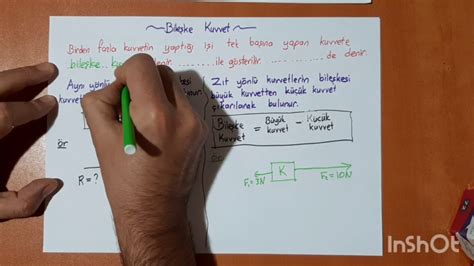 Bileşke Kuvvet
Birden fazla kuvvetin yaptığı işi tek başına yapan kuvvete
bileşke ile gösterilir. de denir.
Aynı yönlü
kuvvet
Zıt yönlü kuvvetlerin bileşkesi
büyük kuvvetten küçük kuvvet
çıkarılarak bulunur.
Bileşke Kuvvet = Büyük kuvvet - Küçük kuvvet
ör
K
F₁=3N
F₂=10N
R=?
InShOt